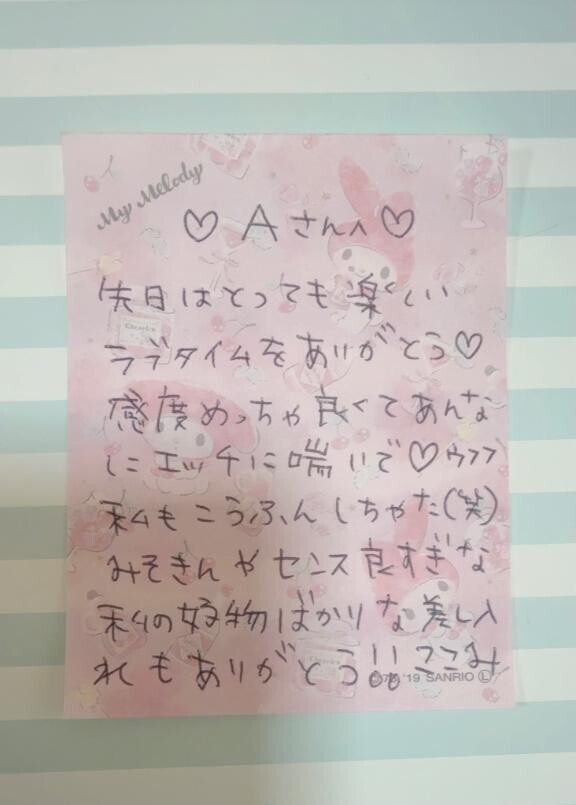 My Melody
♡ Aさんへ ♡
先日はとっても楽しい
ラブタイムをありがとう♡
感度めっちゃ良くてあんな
にエッチに喘いで♡ウフフ
私もこうふんしちゃた(笑)
みそきんやセンス良すぎな
私の好物ばかりな差し入
れもありがとう!!ここみ
'76, '19 SANRIO Ⓛ